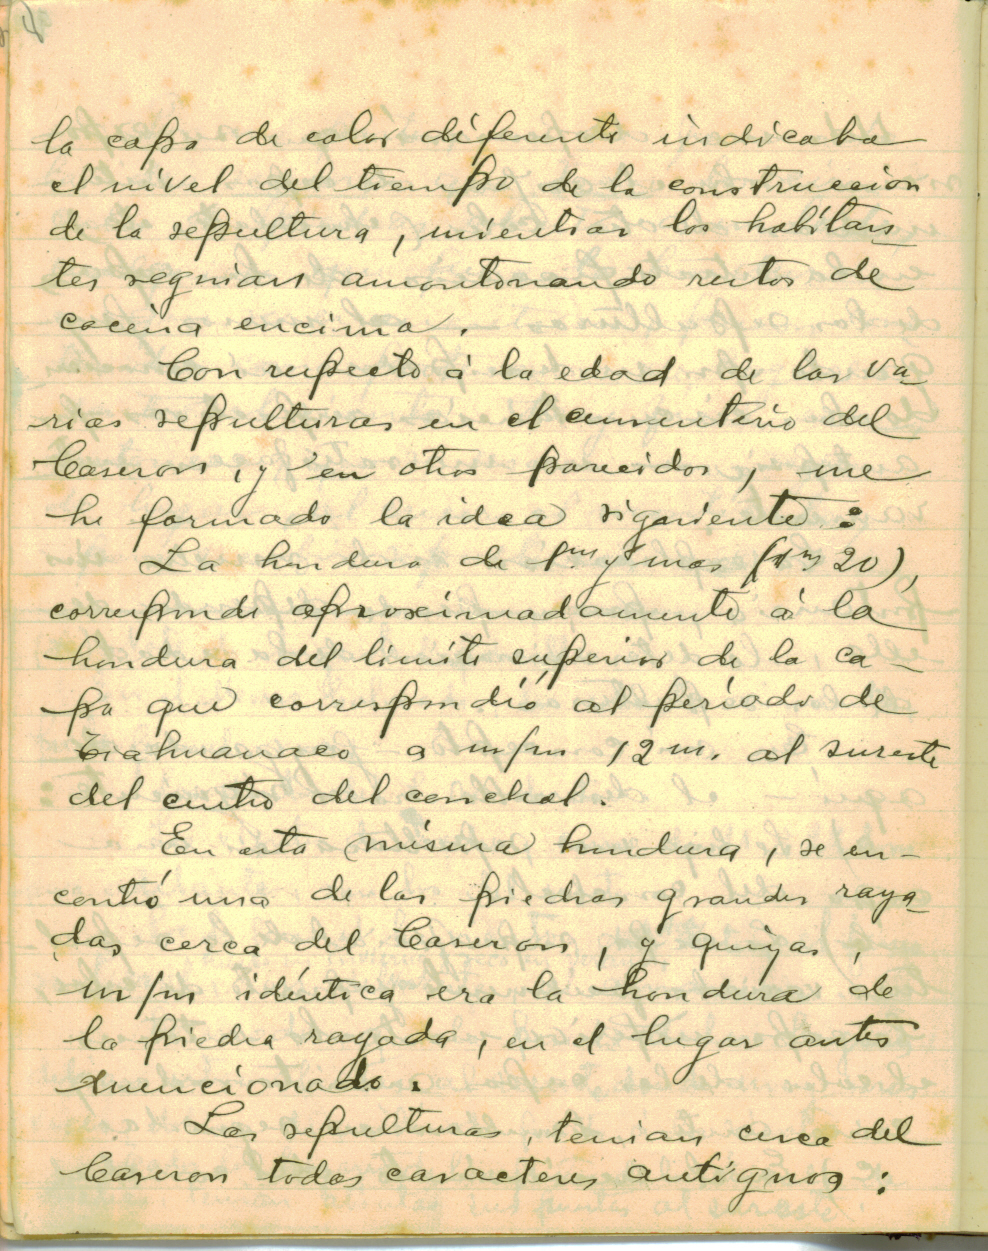 la capa de color diferente indicaba
el nivel del tiempo de la construccion
de la sepultura, mientras los habitan-
tes seguian amontonando restos de
cocina encima.
Con respecto á la edad de las va-
rias sepulturas en el cementerio del
Caseron, y en otros parecidos, me
he formado la idea siguiente:
La hondura de 1m. y mas (1m 20),
corresponde aproximadamente á la
hondura del limite superior de la ca-
pa que correspondió al período de
Tiahuanaco a m/m 12 m. al sureste
del centro del conchal.
En esta misma hondura, se en-
contró una de las piedras grandes raya-
das cerca del Caseron, y quizas,
m/m idéntica era la hondura de
la piedra rayada, en el lugar antes
mencionado.
Las sepulturas, tenian cerca del
Caseron todas caracteres antiguos: